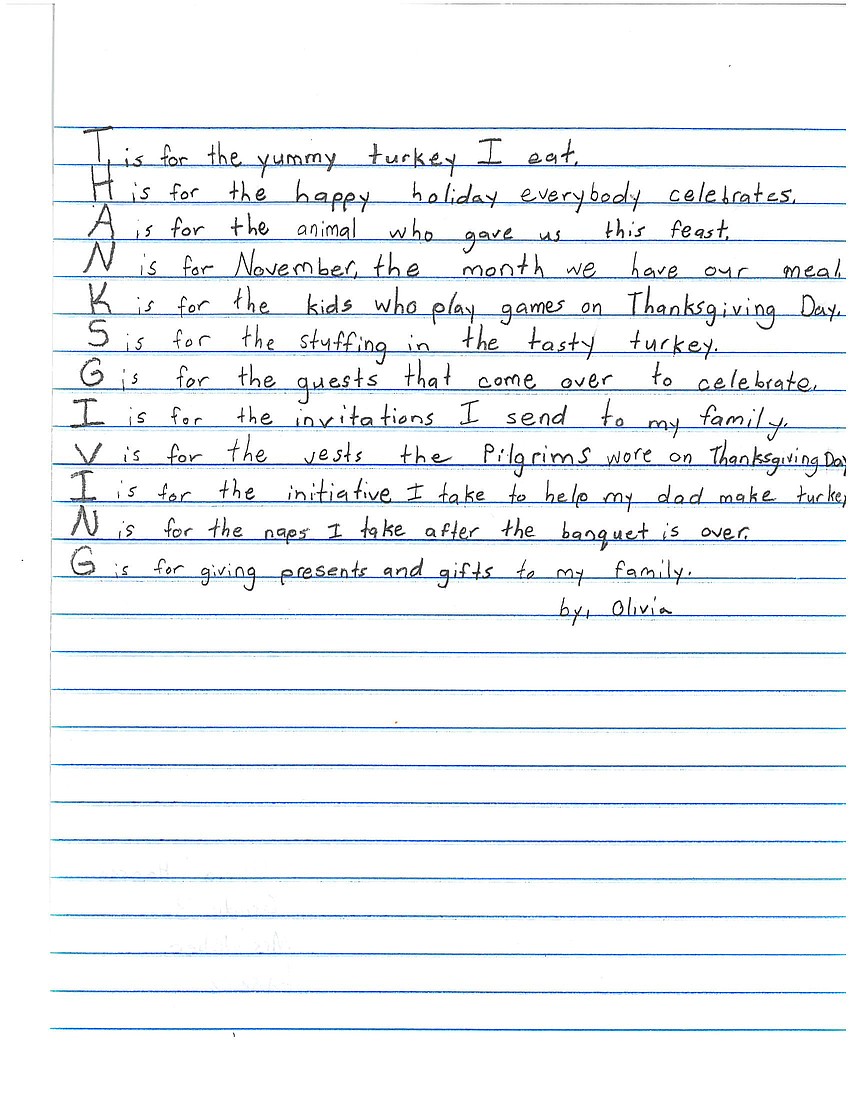 T is for the yummy turkey I eat.
H is for the happy holiday everybody celebrates.
A is for the animal who gave us this feast.
N is for November, the month we have our meal.
K is for the kids who play games on Thanksgiving Day.
S is for the stuffing in the tasty turkey.
G is for the guests that come over to celebrate.
I is for the invitations I send to my family.
V is for the vests the Pilgrims wore on Thanksgiving Day
I is for the initiative I take to help my dad make turkey
N is for the naps I take after the banquet is over.
G is for giving presents and gifts to my family.
by, Olivia